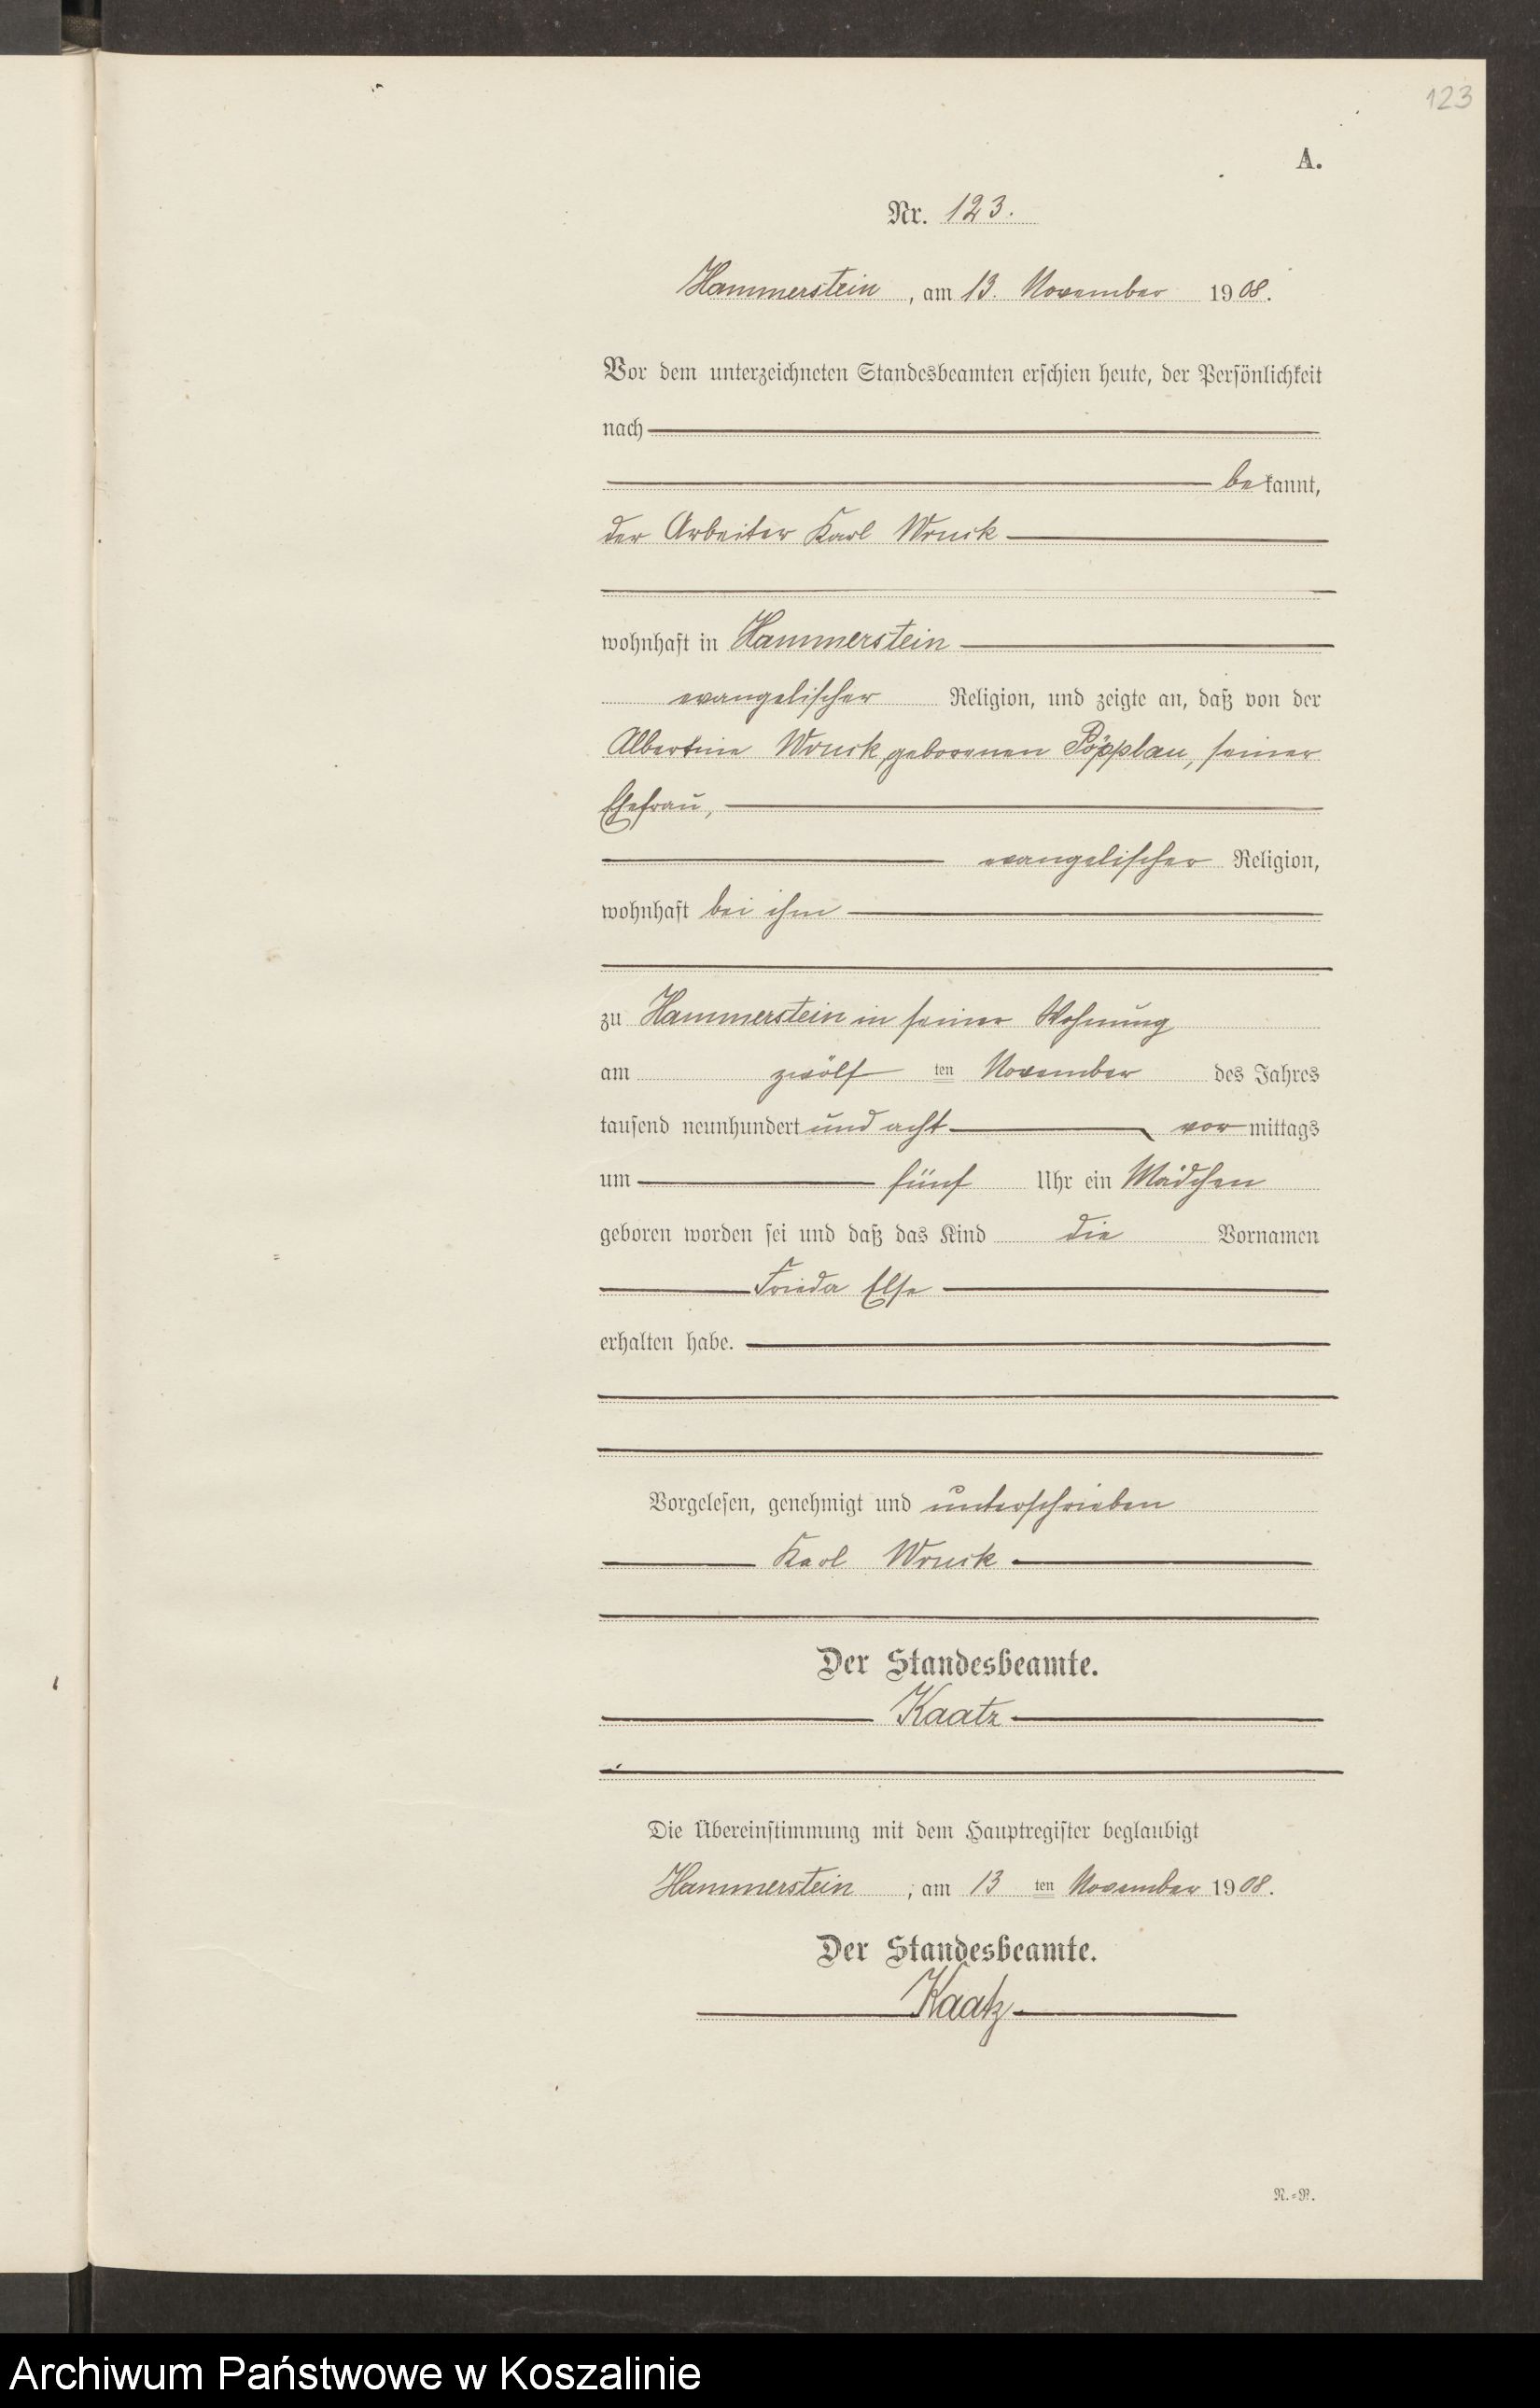 123
A.
Nr. 123.
Hammerstein, am 13. November 1908.
Vor dem unterzeichneten Standesbeamten erschien heute, der Persönlichkeit
nach
bekannt,
der Arbeiter Karl Wruck
wohnhaft in Hammerstein
evangelischer Religion, und zeigte an, daß von der
Albertine Wruck, geborenen Pöpplau, seiner
Ehefrau,
evangelischer Religion,
wohnhaft bei ihm
zu Hammerstein in seiner Wohnung
am zwölf ten November des Jahres
tausend neunhundert und acht vormittags
um fünf Uhr ein Mädchen
geboren worden sei und daß das Kind die Vornamen
Frieda Else
erhalten habe.
Vorgelesen, genehmigt und unterschrieben
Karl Wruck
Der Standesbeamte.
Kaatz
Die Übereinstimmung mit dem Hauptregister beglaubigt
Hammerstein, am 13 ten November 1908.
Der Standesbeamte.
Kaatz
N.=R.
Archiwum Państwowe w Koszalinie